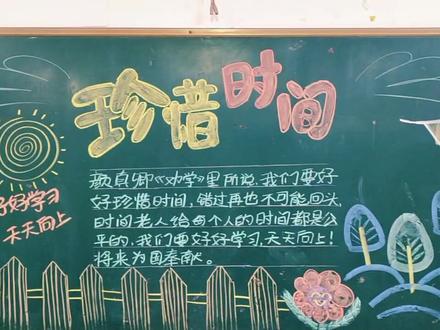 珍惜时间
颜真卿《劝学》里所说、我们要好
好珍惜时间,错过再也不可能回头,
时间老人给每个人的时间都是公
平的、我们要好好学习,天天向上!
将来为国奉献。
好好学习
天天向上